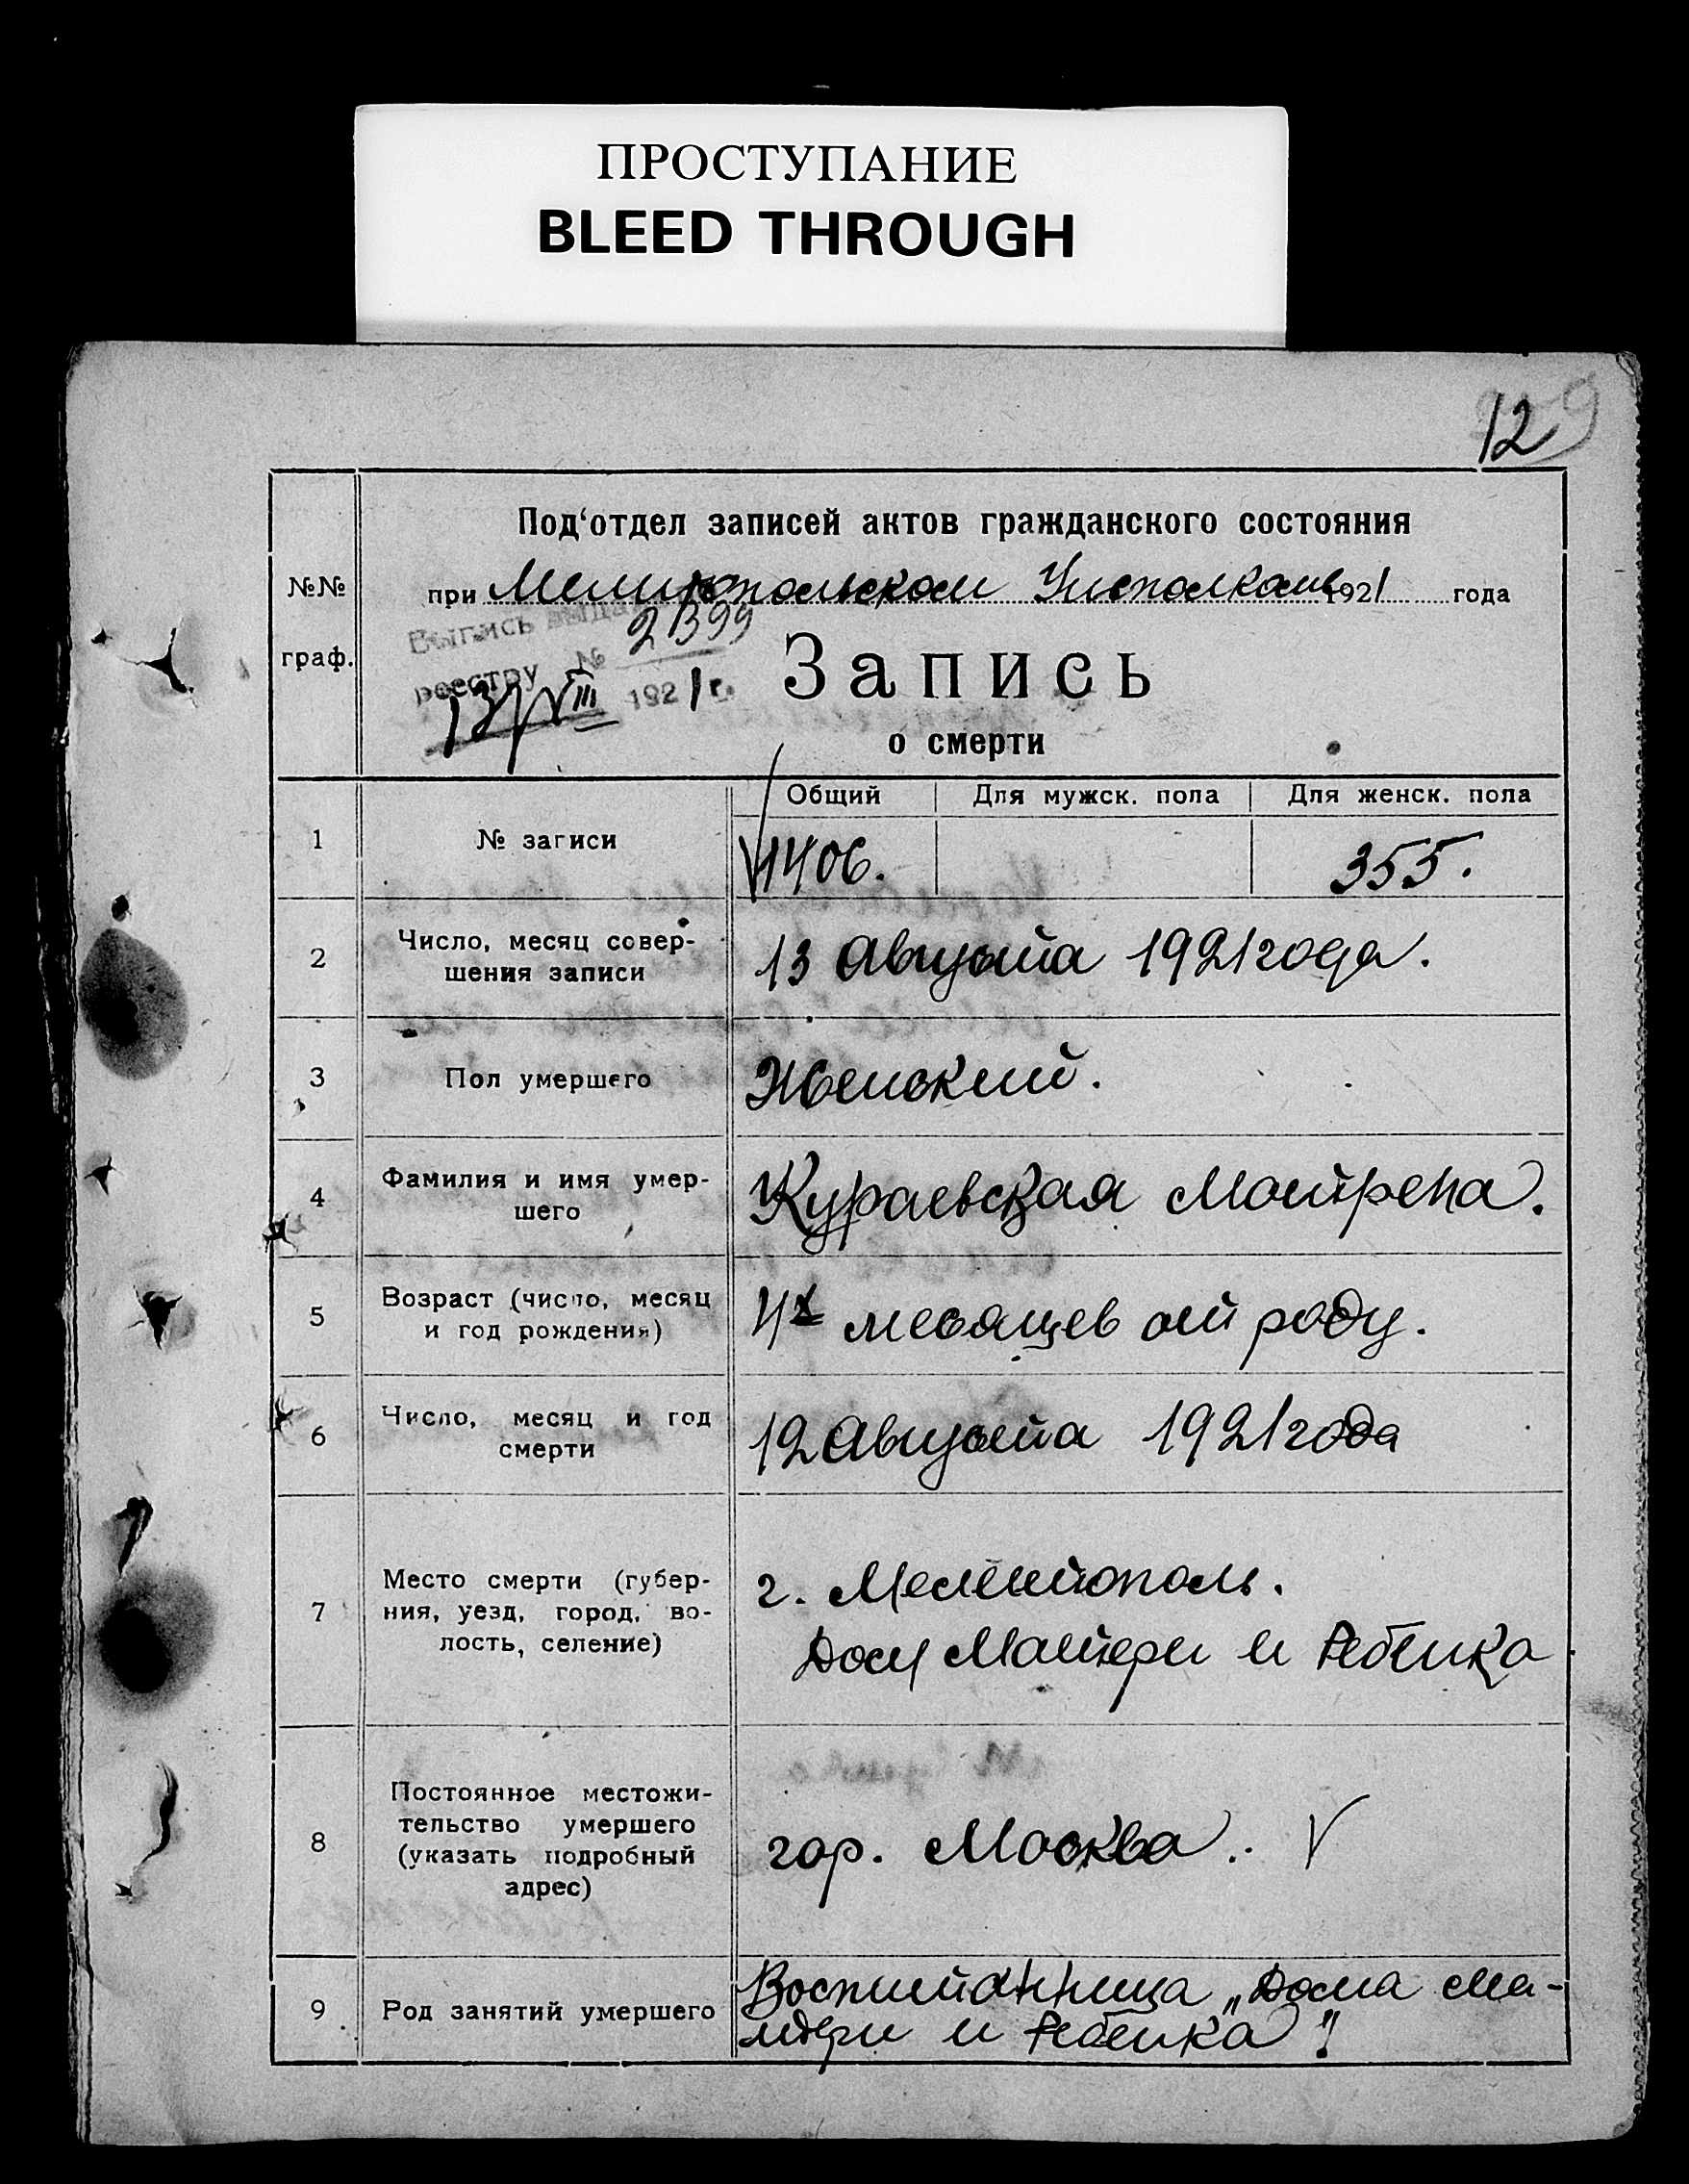 ПРОСТУПАНИЕ
BLEED THROUGH
12
Под‘отдел записей актов гражданского состояния
№№
граф.
при Мелитопольском Исполкоме 1921 года
Выпись выдана
реестру № 2399
13/VIII 1921 г.
Запись
о смерти
Общий Для мужск. пола Для женск. пола
1 № записи 1406. 355.
2 Число, месяц совер-
шения записи
13 Августа 1921 года.
3 Пол умершего Женский.
4 Фамилия и имя умер-
шего
Кураевская Матрена.
5 Возраст (число, месяц
и год рождения)
4х месяцев от роду.
6 Число, месяц и год
смерти
12 Августа 1921 года
7 Место смерти (губер-
ния, уезд, город, во-
лость, селение)
г. Мелитополь.
Дом Матери и Ребенка
8 Постоянное местожи-
тельство умершего
(указать подробный
адрес)
гор. Москва. V
9 Род занятий умершего
Воспитанница „Дома Ма-
тери и Ребенка"